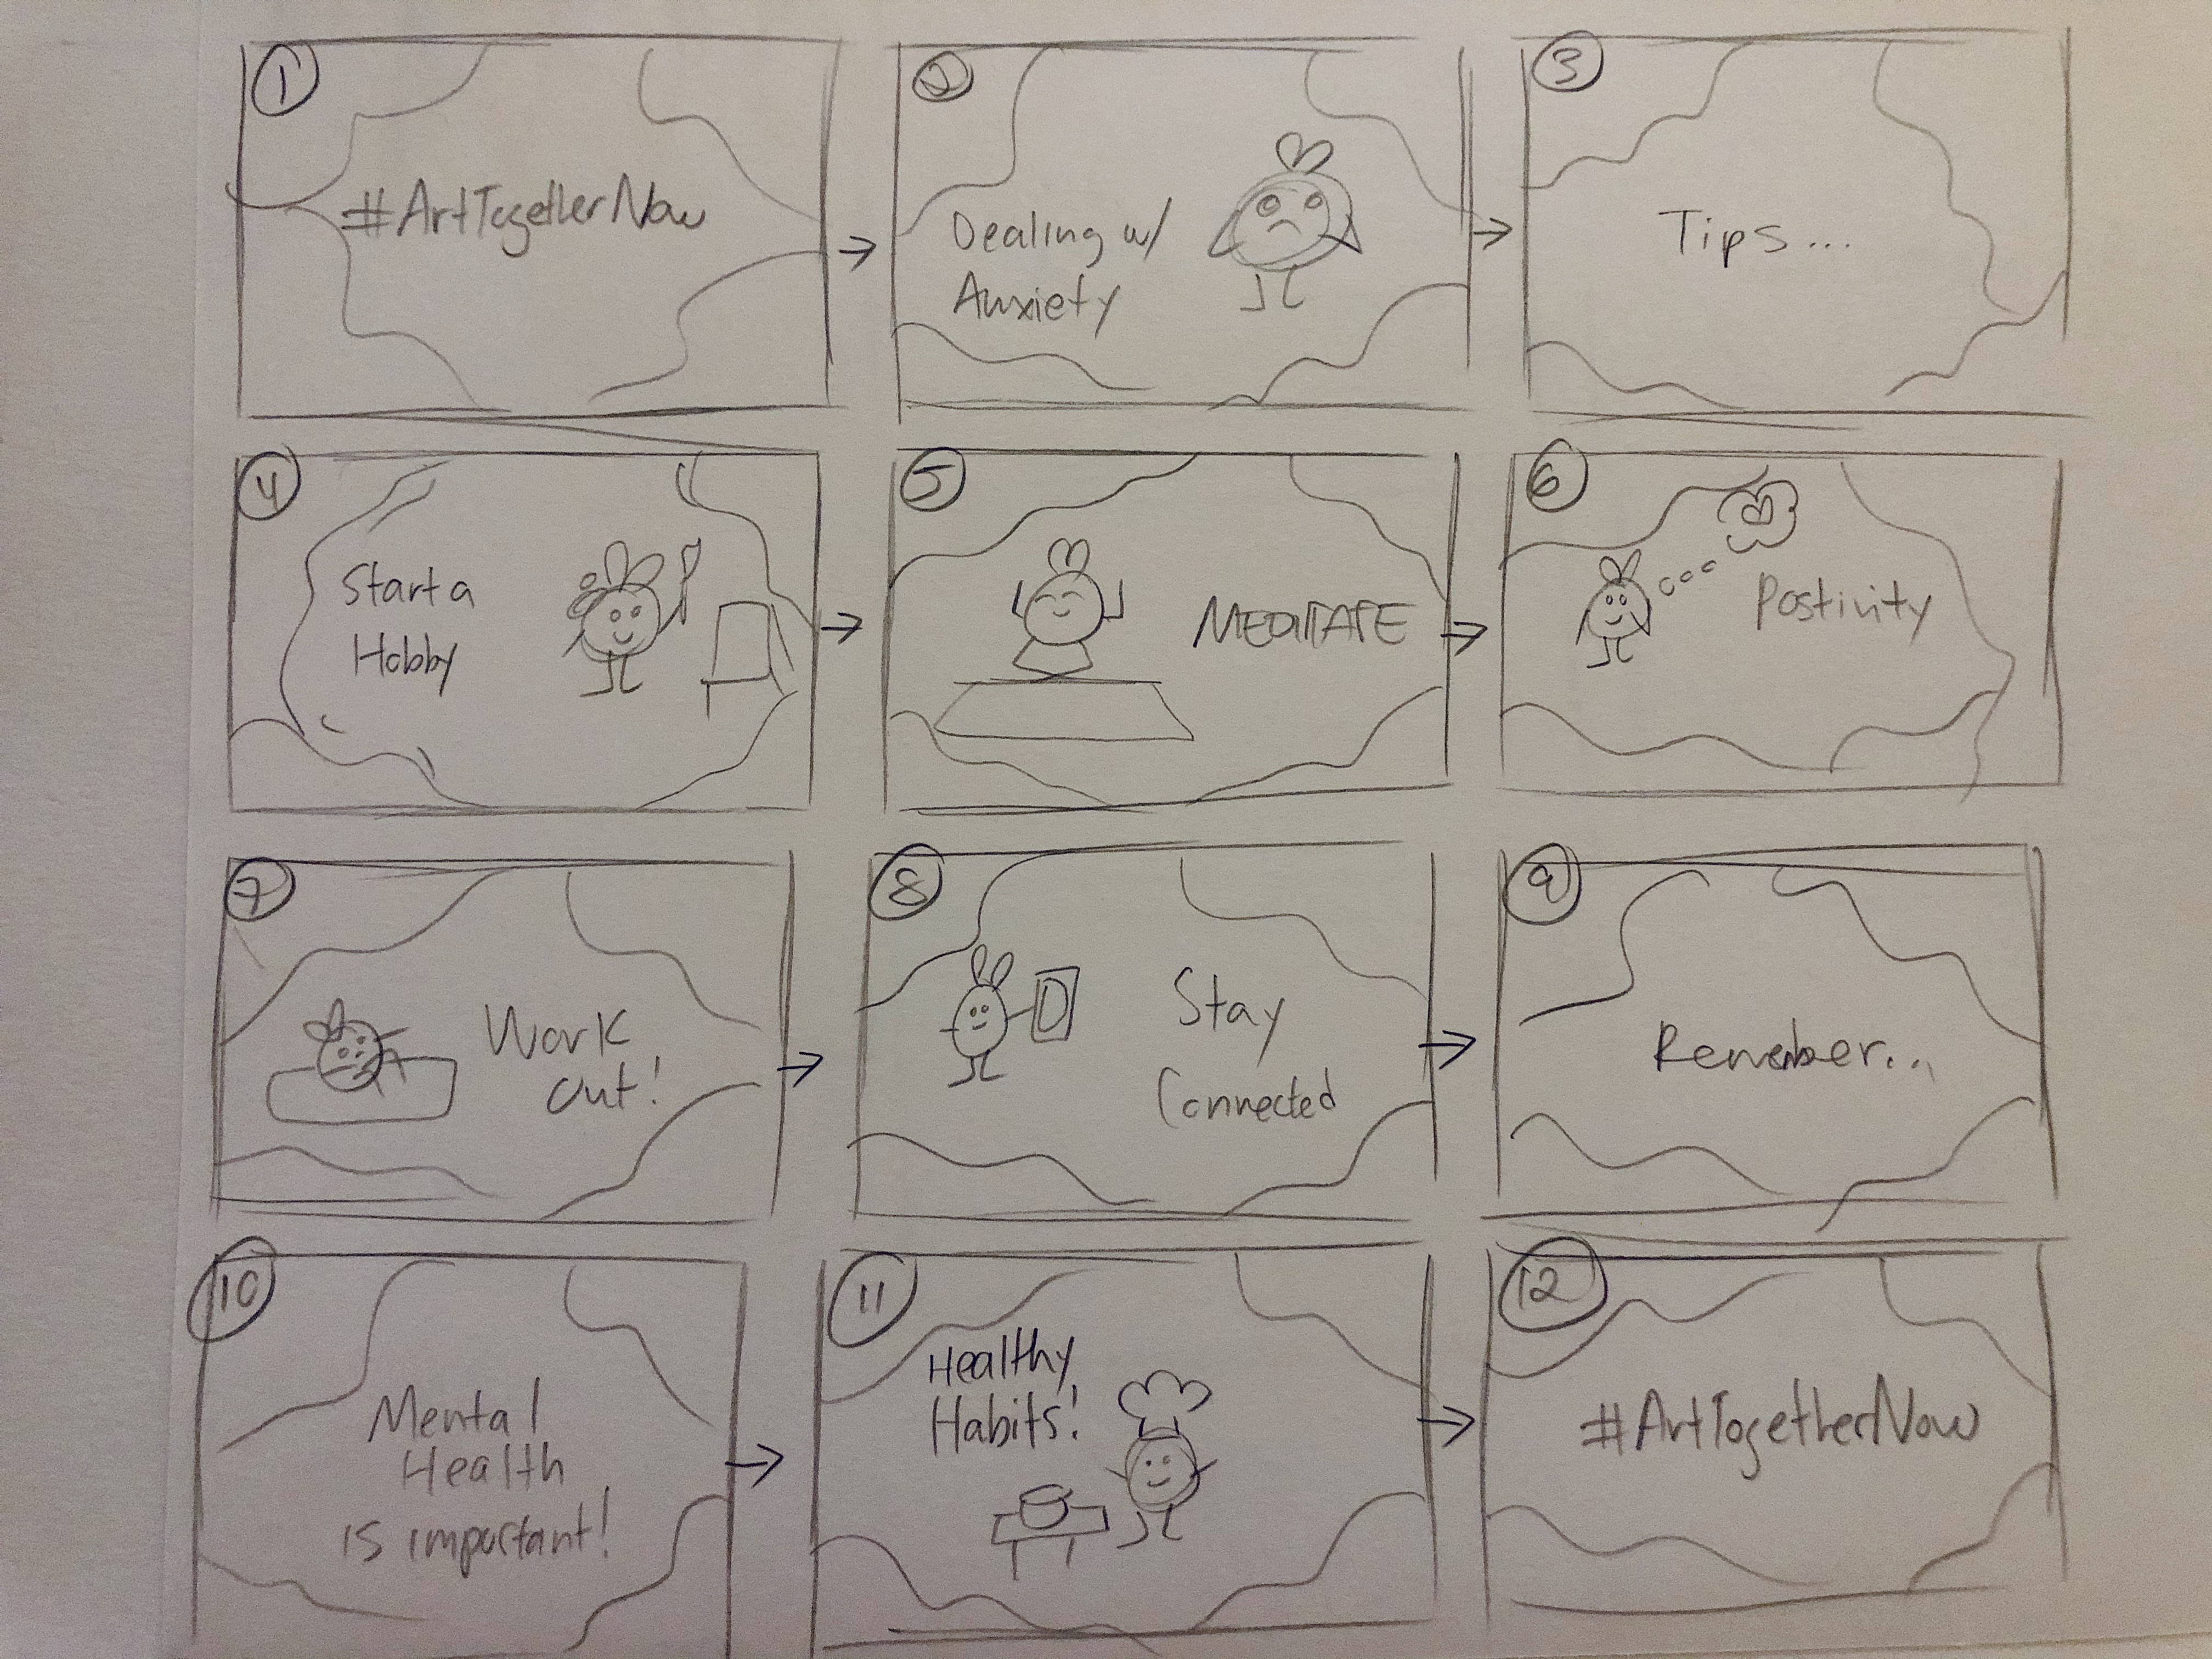 1
#ArtTogetherNow
2
Dealing w/
Anxiety
3
Tips...
4
Start a
Hobby
5
MEDITATE
6
Postivity
7
Work
out!
8
Stay
Connected
9
Remember...
10
Mental
Health
is important!
11
Healthy
Habits!
12
#ArtTogetherNow